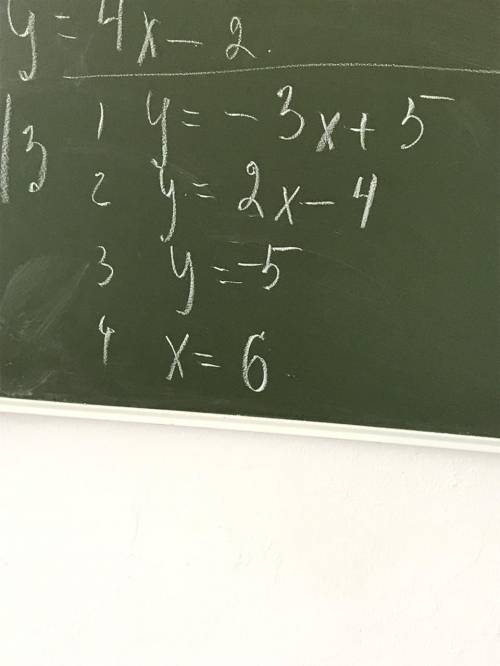 y = 4x - 2.
13 1 y = - 3x + 5
2 y = 2x - 4
3 y = -5
4 x = 6